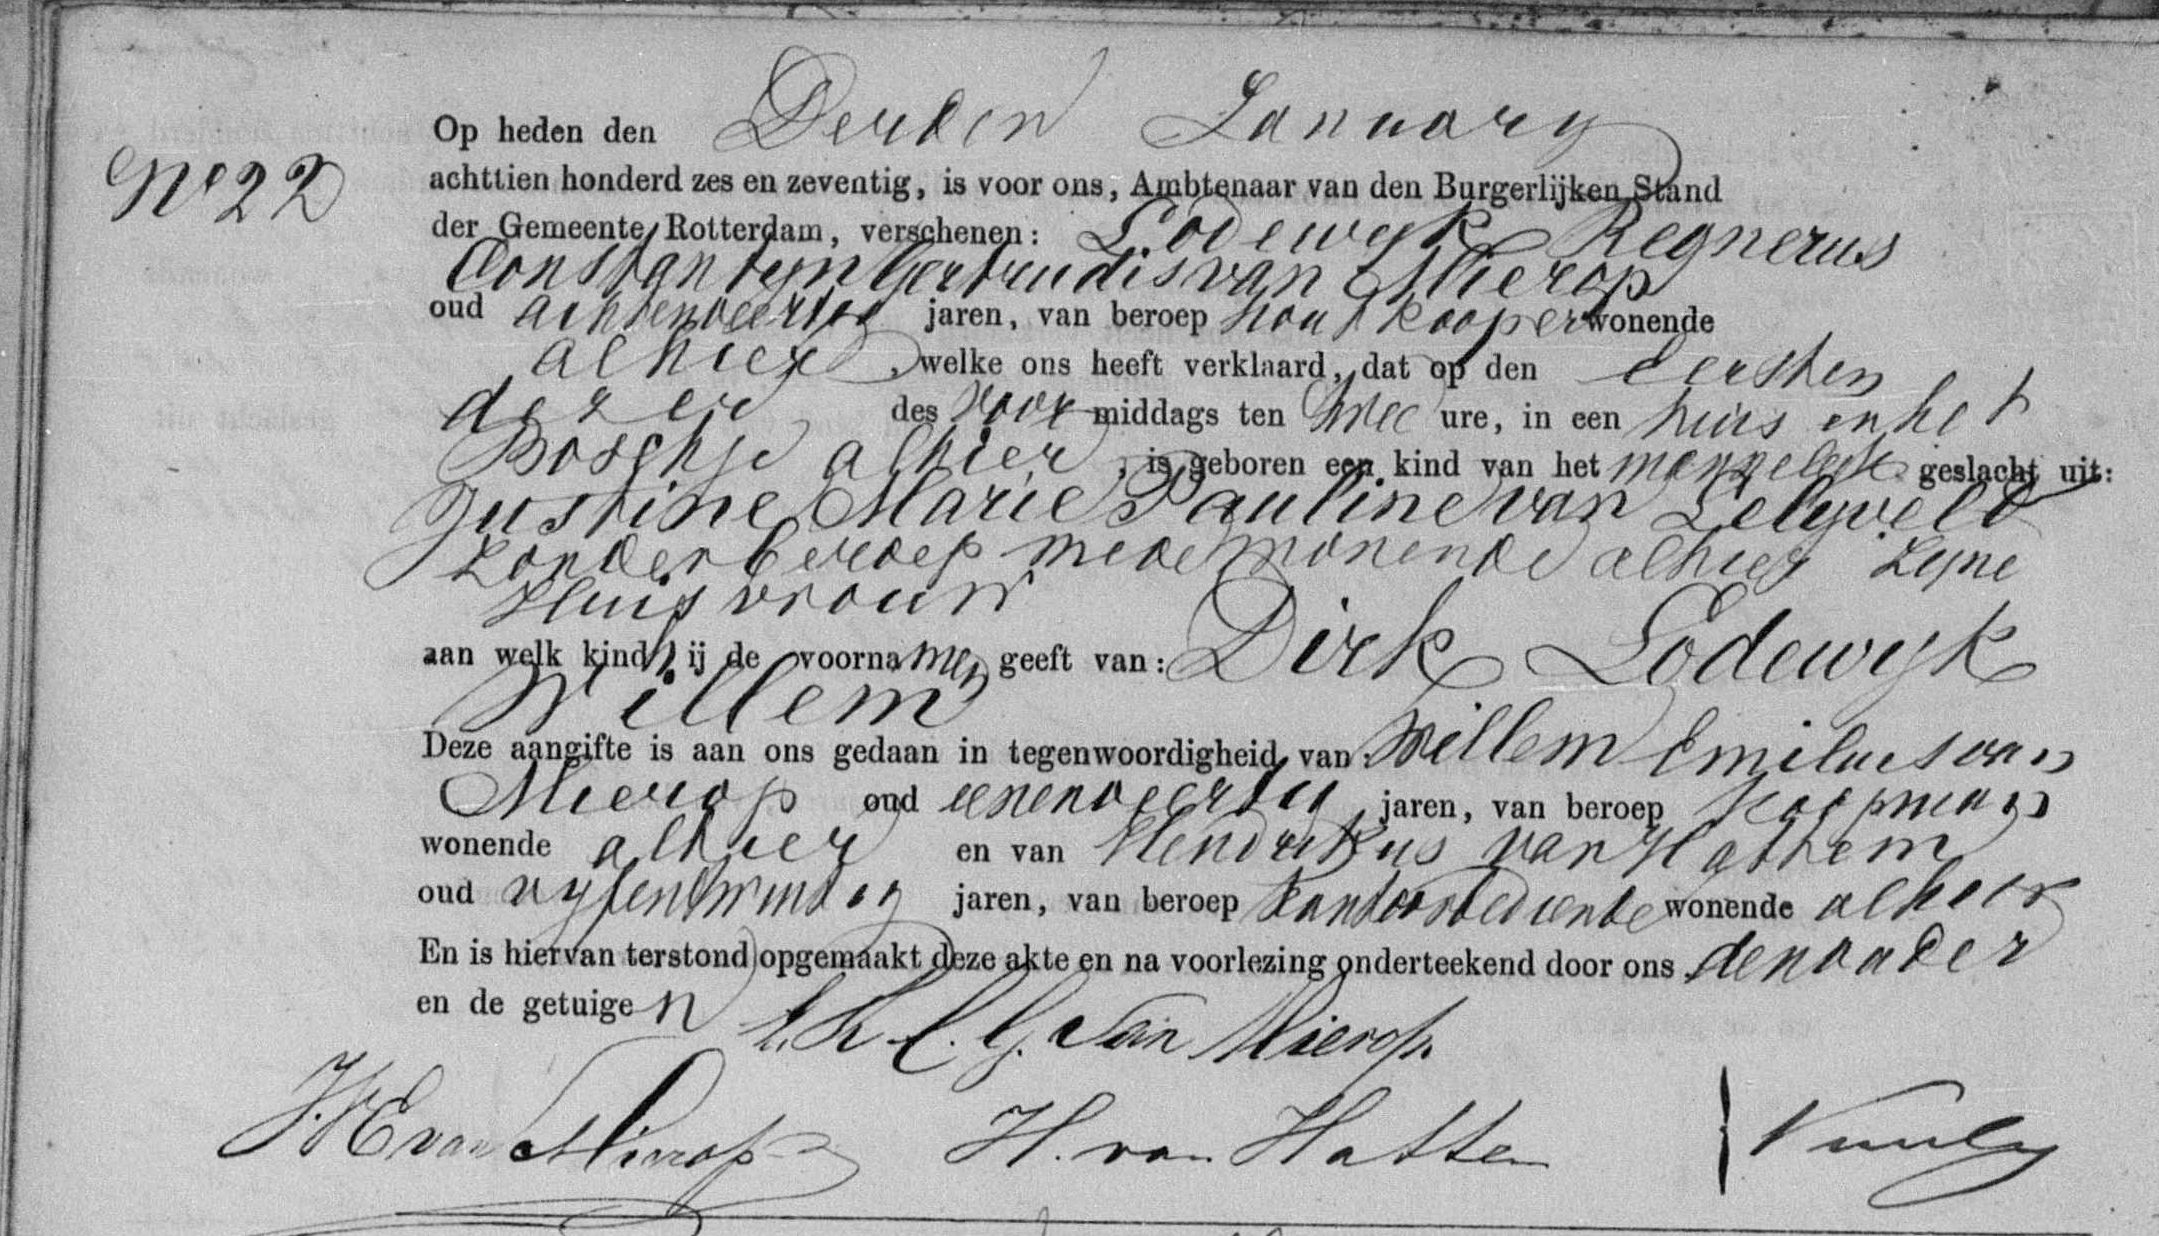 Nº 22
Op heden den Derden January
achttien honderd zes en zeventig, is voor ons, Ambtenaar van den Burgerlijken Stand
der Gemeente Rotterdam, verschenen: Lodewyk Regnerus
Constantyn Gertrudis van Mierop
oud achtenveertig jaren, van beroep houtkooper wonende
alhier, welke ons heeft verklaard, dat op den eersten
dezer des voormiddags ten twee ure, in een huis in het
Boschje alhier, is geboren een kind van het mannelyk geslacht uit:
Justine Marie Pauline van Lelyveld
zonder beroep mede wonende alhier zyne
Huisvrouw
aan welk kind hij de voornamen geeft van: Dirk Lodewyk
Willem
Deze aangifte is aan ons gedaan in tegenwoordigheid van Willem Emilius van
Mierop oud eenenveertig jaren, van beroep koopman
wonende alhier en van Hendrikus van Hattem
oud vyfentwintig jaren, van beroep kantoorbediende wonende alhier
En is hiervan terstond opgemaakt deze akte en na voorlezing onderteekend door ons den vader
en de getuigen
L. R. C. G. van Mierop
W E van Mierop H. van Hattem